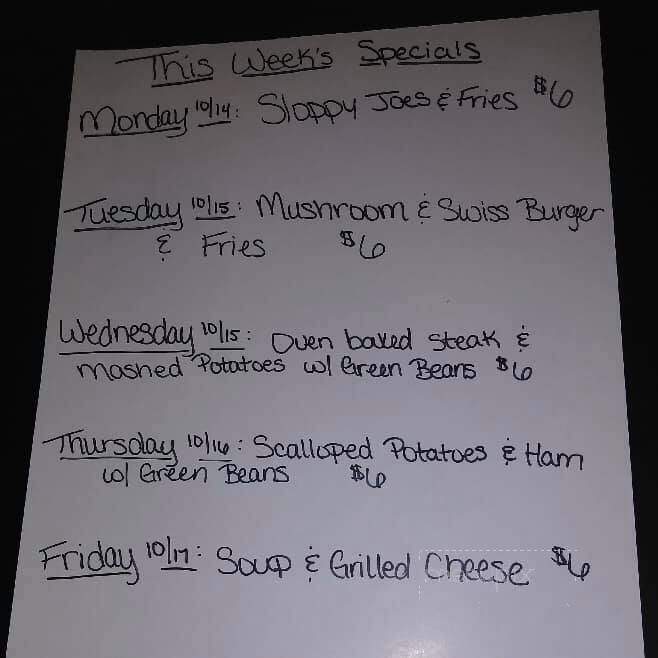 This Week's Specials
Monday 10/14: Sloppy Joes & Fries $6
Tuesday 10/15: Mushroom & Swiss Burger
& Fries $6
Wednesday 10/15: Oven baked steak &
mashed Potatoes w/ Green Beans $6
Thursday 10/16: Scalloped Potatoes & Ham
w/ Green Beans $6
Friday 10/17: Soup & Grilled Cheese $6